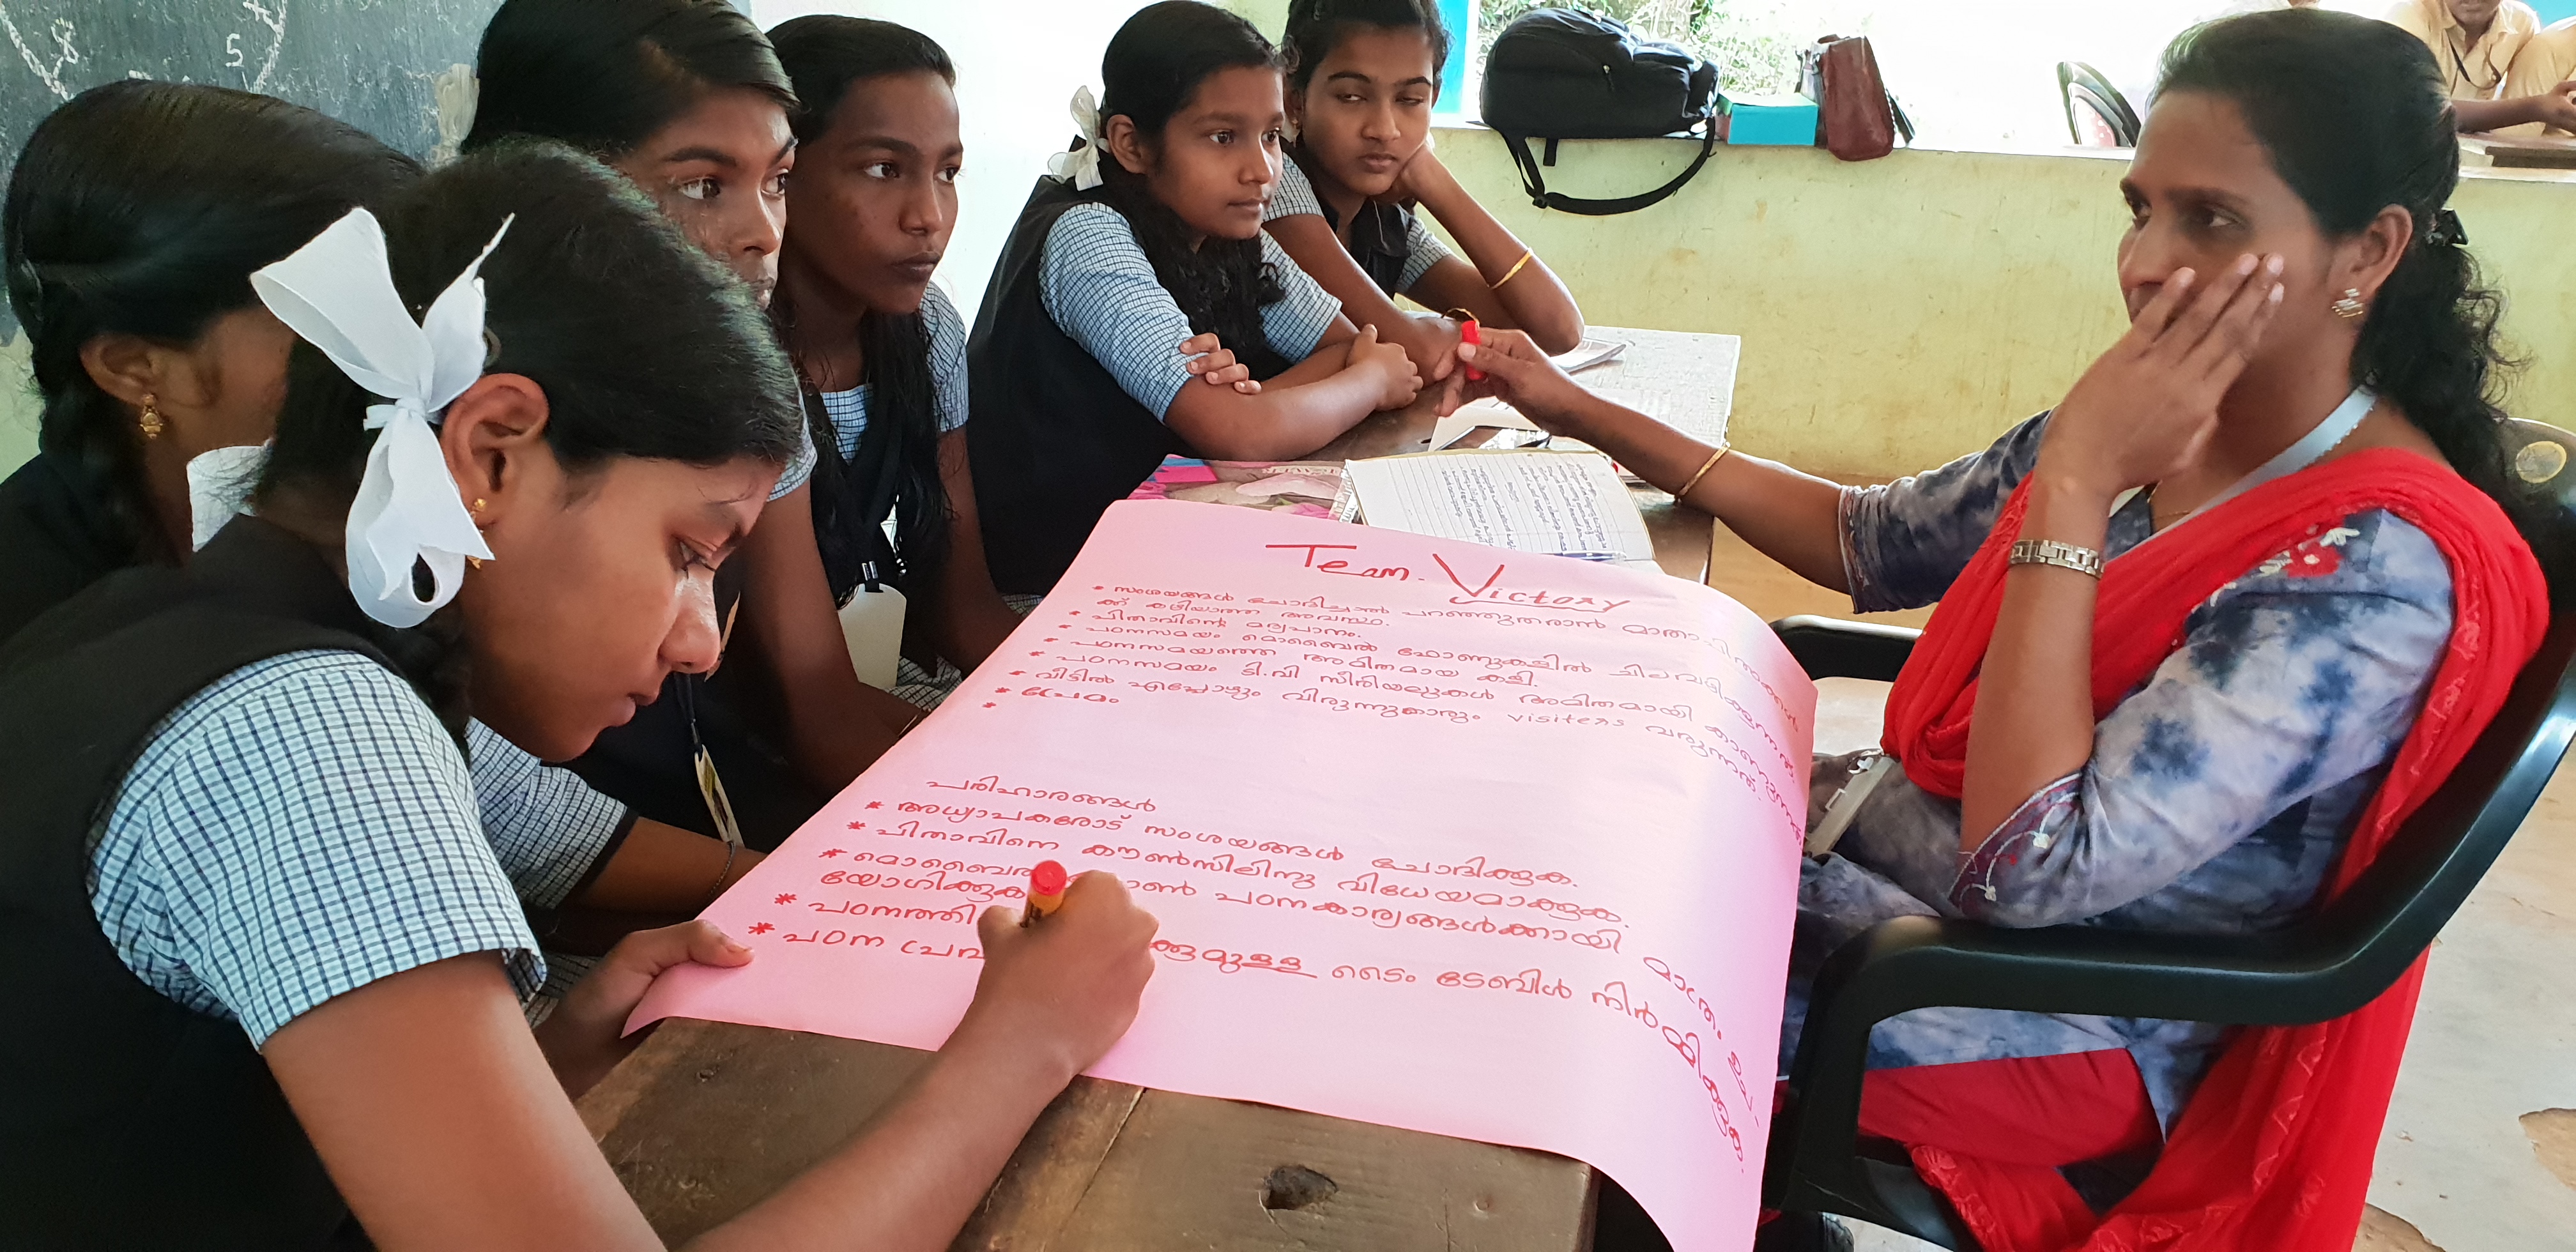 8
5
Team. Victory
* സംശയങ്ങൾ ചോദിച്ചാൽ പറഞ്ഞുതരാൻ മാതാപിതാക്കൾ
ക്ക് കഴിയാത്ത അവസ്ഥ.
* പിതാവിന്റെ മദ്യപാനം.
* പഠനസമയം മൊബൈൽ ഫോണുകളിൽ ചിലവഴിക്കുന്നത്.
* പഠനസമയത്തെ അമിതമായ കളി.
* പഠനസമയം ടി.വി സീരിയലുകൾ അമിതമായി കാണുന്നത്.
* വീട്ടിൽ എപ്പോഴും വിരുന്നുകാരും visiters വരുന്നത്.
* പ്രേമം
*
പരിഹാരങ്ങൾ
* അധ്യാപകരോട് സംശയങ്ങൾ ചോദിക്കുക.
* പിതാവിനെ കൗൺസിലിനു വിധേയമാക്കുക.
* മൊബൈൽ ഫോൺ പഠനകാര്യങ്ങൾക്കായി മാത്രം ഉപ
യോഗിക്കുക
* പഠനത്തി
* പഠന ടൈം ടേബിൾ നിർമ്മിക്കുക.